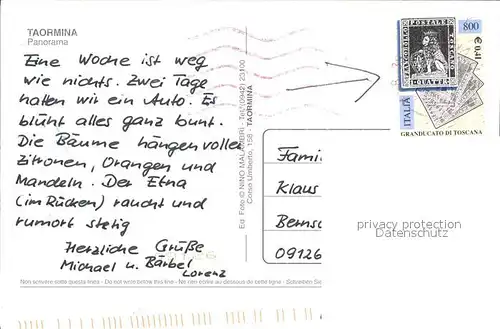 TAORMINA
Panorama
Eine Woche ist weg
wie nichts. Zwei Tage
hatten wir ein Auto. Es
blüht alles ganz bunt.
Die Bäume hängen voller
Zitronen, Orangen und
Mandeln. Der Etna
(im Rücken) raucht und
rumort stetig
Herzliche Grüße
Michael u. Bärbel
Lorenz
Non scrivere sotto questa linea - Do not write below this line - Ne rien écrire au dessous de cette ligne - Schreiben Sie
Ed. Foto © NINO MALAMBRÌ - Tel. (0942) 23100
Corso Umberto, 156 - TAORMINA
800
€ 0,41
ITALIA
FRANCOBOLLO POSTALE TOSCANO
QUATTR
GRANDUCATO DI TOSCANA
Famil
Klaus
Bernsd
09126
privacy protection
Datenschutz